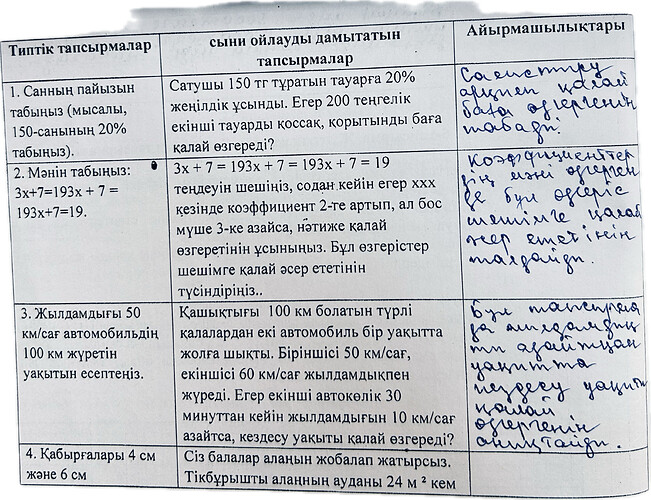 Типтік тапсырмалар
сыни ойлауды дамытатын
тапсырмалар
Айырмашылықтары
1. Санның пайызын
табыңыз (мысалы,
150-санының 20%
табыңыз).
Сатушы 150 тг тұратын тауарға 20%
жеңілдік ұсынды. Егер 200 теңгелік
екінші тауарды қоссақ, қорытынды баға
қалай өзгереді?
Салыстыру
арқылы қалай
баға өзгергенін
табады.
2. Мәнін табыңыз:
3x+7=193x + 7 =
193x+7=19.
3x + 7 = 193x + 7 = 193x + 7 = 19
теңдеуін шешіңіз, содан кейін егер xxx
кезінде коэффициент 2-те артып, ал бос
мүше 3-ке азайса, нәтиже қалай
өзгеретінін ұсыныңыз. Бұл өзгерістер
шешімге қалай әсер ететінін
түсіндіріңіз..
Коэффициентте
дің мәні өзгерген
де бұл өзгеріс
шешімге қалай
әсер ететінін
талдайды.
3. Жылдамдығы 50
км/сағ автомобильдің
100 км жүретін
уақытын есептеңіз.
Қашықтығы 100 км болатын түрлі
қалалардан екі автомобиль бір уақытта
жолға шықты. Біріншісі 50 км/сағ,
екіншісі 60 км/сағ жылдамдықпен
жүреді. Егер екінші автокөлік 30
минуттан кейін жылдамдығын 10 км/сағ
азайтса, кездесу уақыты қалай өзгереді?
Бұл тапсырма
да жылдамдық
ты азайтқан
уақытта
кездесу уақыты
қалай
өзгергенін
анықтайды.
4. Қабырғалары 4 см
және 6 см
Сіз балалар алаңын жобалап жатырсыз.
Тікбұрышты алаңның ауданы 24 м ² кем